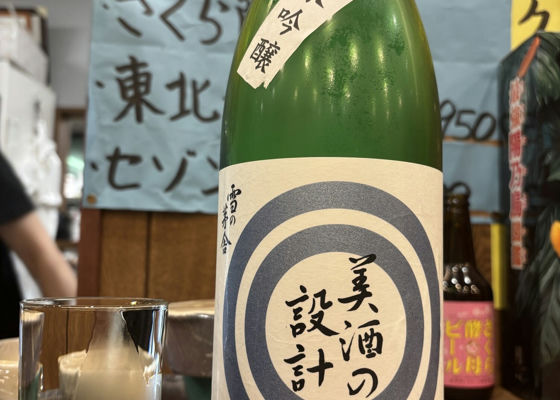 さくら
東北
セゾン
950
吟醸
雪の茅舎
美酒の
設計
さくら
酵母
ビール